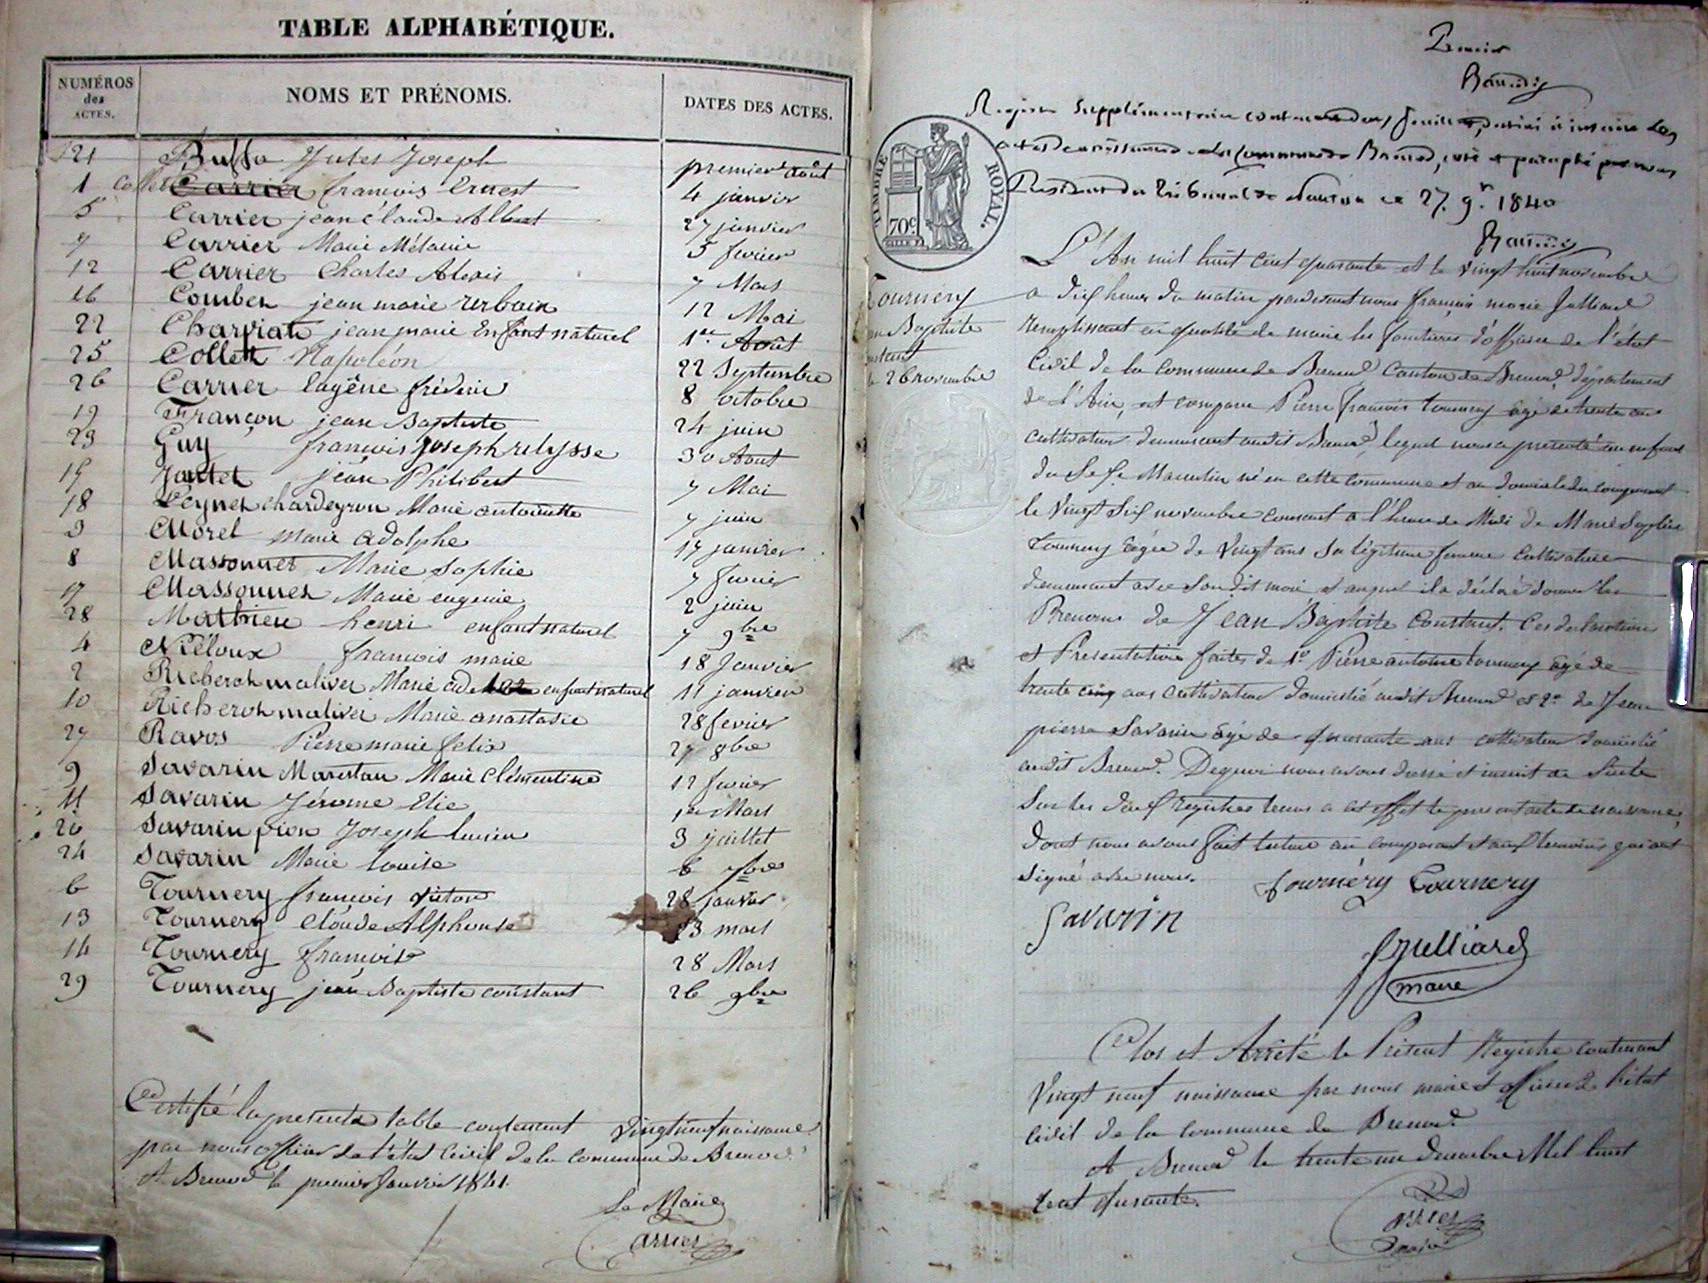 TABLE ALPHABÉTIQUE.
NUMÉROS des ACTES. NOMS ET PRÉNOMS. DATES DES ACTES.
21 Buffo Jules Joseph premier Août
1 Collet Carrier françois Ernest 4 janvier
5 Carrier jean claude Albert 27 janvier
7 Carrier Marie Mélanie 5 fevrier
12 Carrier Charles Alexis 7 Mars
16 Combet jean marie urbain 12 Mai
22 Charpiat jean marie Enfant naturel 1er Août
25 Collet Napoléon 22 Septembre
26 Carrier Eugêne fréderic 8 octobre
19 Françon jean Baptiste 24 juin
23 Guy françois joseph ulysse 30 Aout
15 Jantet jean Philibert 7 Mai
18 Leynet chardeyron Marie antoinette 7 juin
3 Morel marie adolphe 17 janvier
8 Massonnet Marie Sophie 7 fevrier
17 Massonnet Marie eugenie 2 juin
28 Mathieu henri enfant naturel 7 9bre
4 Niéloux françois marie 18 Janvier
2 Richerot maliver Marie enfant naturel 11 janvier
10 Richerot maliver Marie anastasie 28 fevrier
27 Ravos Pierre marie felix 27 8bre
9 Savarin Marestan Marie Clémentine 12 fevrier
11 Savarin Jérome Elie 1er Mars
20 Savarin pion Joseph lucien 3 juillet
24 Savarin Marie louise 6 7bre
6 Tournery françois victor 28 janvier
13 Tournery Claude Alphonse 23 mars
14 Tournery françois 28 Mars
29 Tournery jean Baptiste constant 26 9bre
Certifié la presente table contenant vingt neuf naissance
par nous officier de l'état Civil de la commune de Brenod
A Brenod le premier Janvier 1841
Le Maire
Carrier
Premier
Registre Supplémentaire contenant deux feuilles, destiné à inscrire les
actes de naissances de la Commune de Brenod, coté et paraphé par nous
Président du Tribunal de Nantua ce 27. 9r 1840
TIMBRE ROYAL.
70c
L'An mil huit cent quarante et le vingt huit novembre
a dix heures du matin pardevant nous françois marie Julliard
remplissant en qualité de maire les fonctions d'officier de l'état
Civil de la commune de Brenod Canton de Brenod, département
de l'Ain, est comparu Pierre françois tournery âgé de trente ans
cultivateur demeurant audit Brenod, lequel nous a presenté un enfant
du Sexe Masculin né en cette commune et au domicile du comparant
le vingt Six novembre courant a l'heure de Midi de Marie Sophie
tournery âgée de vingt ans Sa légitime femme Cultivatrice
demeurant avec Son dit mari et auquel il a déclaré donner les
Prenoms de Jean Baptiste Constant. Ces declaration
et Presentation faites de 1o Pierre antoine tournery âgé de
trente cinq ans cultivateur domicilié audit Brenod et 2o de Jean
pierre Savarin âgé de quarante ans cultivateur domicilié
audit Brenod. Dequoi nous avons dressé et inscrit de Suite
Sur les deux registres tenus a cet effet le present acte de naissance,
dont nous avons fait lecture au comparant et aux temoins qui ont
signé avec nous. tournéry Tournery
Savarin
Julliard
maire
Tournery
Baptiste
26 novembre
Clos et Arrêté le Présent Registre contenant
vingt neuf naissance par nous maire et officier de l'état
civil de la commune de Brenod
A Brenod le trente un decembre Mil huit
Cent quarante.
Carrier